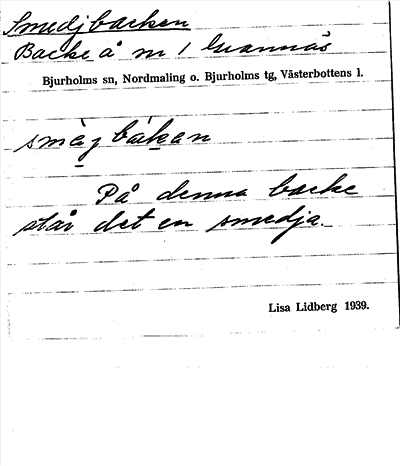 Smedjbacken
Backe å m 1 Grannäs
Bjurholms sn, Nordmaling o. Bjurholms tg, Västerbottens l.
smèjbàkan
På denna backe
står det en smedja.
Lisa Lidberg 1939.